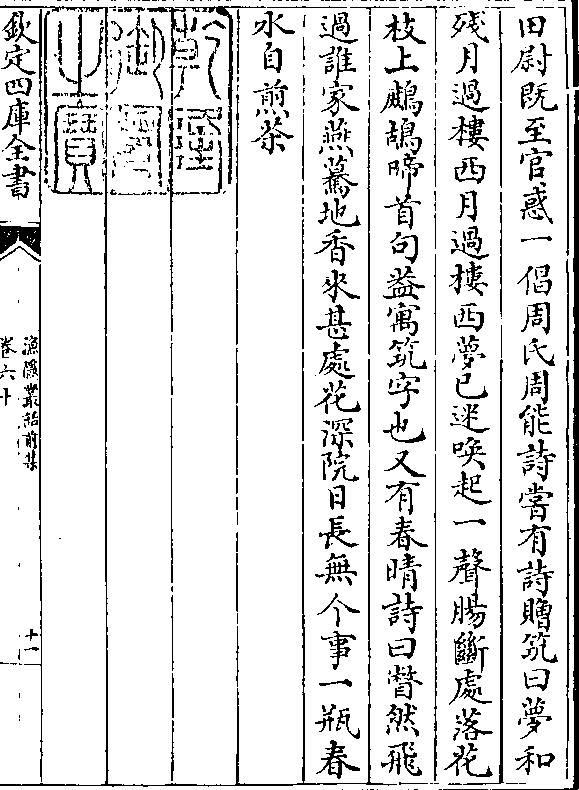 田尉既至官惑一倡周氏周能詩嘗有詩贈筑曰夢和
殘月過樓西月過樓西夢已迷喚起一聲腸斷處落花
枝上鷓鴣啼首句葢寓筑字也又有春晴詩曰瞥然飛
過誰家燕驀地香來甚處花深院日長無个事一瓶春
水自煎茶
乾隆
御覽
之寶
欽定四庫全書
漁隱叢話前集
卷六十
十一